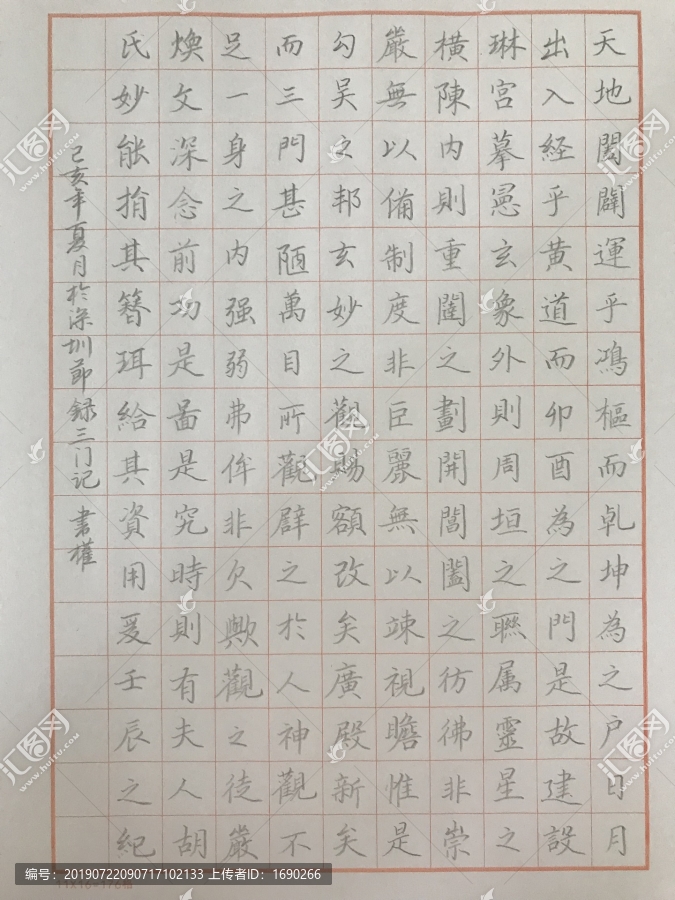 天地闔闢運乎鴻樞而乹坤為之户日月
出入経乎黄道而卯酉為之門是故建設
琳宫摹憲玄象外則周垣之聯属靈星之
横陳内則重闈之劃開閶闔之彷彿非崇
嚴無以備制度非巨麗無以竦視瞻惟是
勾吴之邦玄妙之觀賜額改矣廣殿新矣
而三門甚陋萬目所觀辟之於人神觀不
足一身之内强弱弗侔非欠歟觀之徒嚴
焕文深念前功是啚是究時則有夫人胡
氏妙能捐其簪珥給其資用爰壬辰之紀
己亥年夏月於深圳節録三门记 書權
汇图网 www.huitu.com
编号：20190722090717102133 上传者ID：1690266